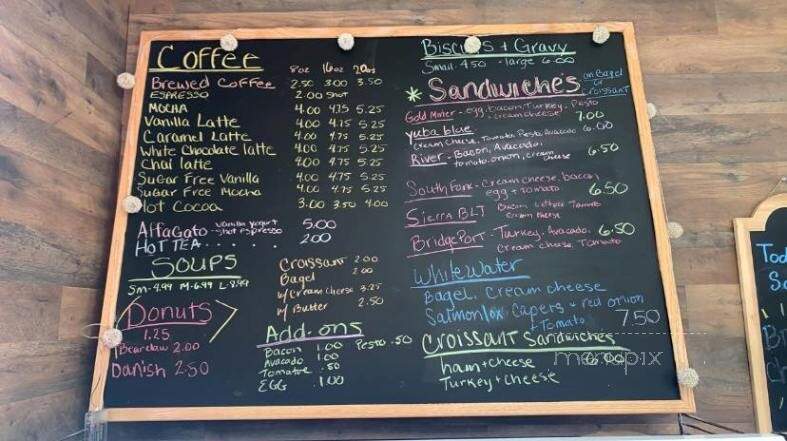 Coffee 8oz 16oz 20oz
Brewed Coffee 2.50 3.00 3.50
ESPRESSO 2.00 Shot
MOCHA 4.00 4.75 5.25
Vanilla Latte 4.00 4.75 5.25
Caramel Latte 4.00 4.75 5.25
White Chocolate latte 4.00 4.75 5.25
Chai latte 4.00 4.75 5.25
Sugar Free Vanilla 4.00 4.75 5.25
Sugar Free Mocha 4.00 4.75 5.25
Hot Cocoa 3.00 3.50 4.00
AlfaGato vanilla yogurt + shot espresso 5.00
HOT TEA . . . . . . 2.00
SOUPS
Sm-4.99 M-6.99 L-8.99
Donuts
1.25
Bearclaw 2.00
Danish 2.50
Croissant 2.00
Bagel 2.00
w/Cream Cheese 3.25
w/ Butter 2.50
Add-ons
Bacon 1.00 Pesto .50
Avocado 1.00
Tomatoe .50
EGG 1.00
Biscuits + Gravy
Small 4.50 - large 6.00
* Sandwiche's on Bagel or Croissant
Gold Miner - egg, bacon, Turkey, Pesto
cream cheese 7.00
yuba blue 6.00
Cream cheese, Tomato, Pesto, Avocado
River - Bacon, Avocado, 6.50
tomato, onion, cream cheese
South Fork - Cream cheese, bacon
egg + tomato 6.50
Sierra BLT Bacon Lettuce Tomato
Cream cheese
BridgePort - Turkey, Avocado, 6.50
Cream cheese, Tomato
WhiteWater
Bagel, Cream cheese
Salmon lox, Capers + red onion
+ Tomato 7.50
Croissant Sandwiches
ham + cheese 6.00
Turkey + cheese
menupix
Tod
Sa